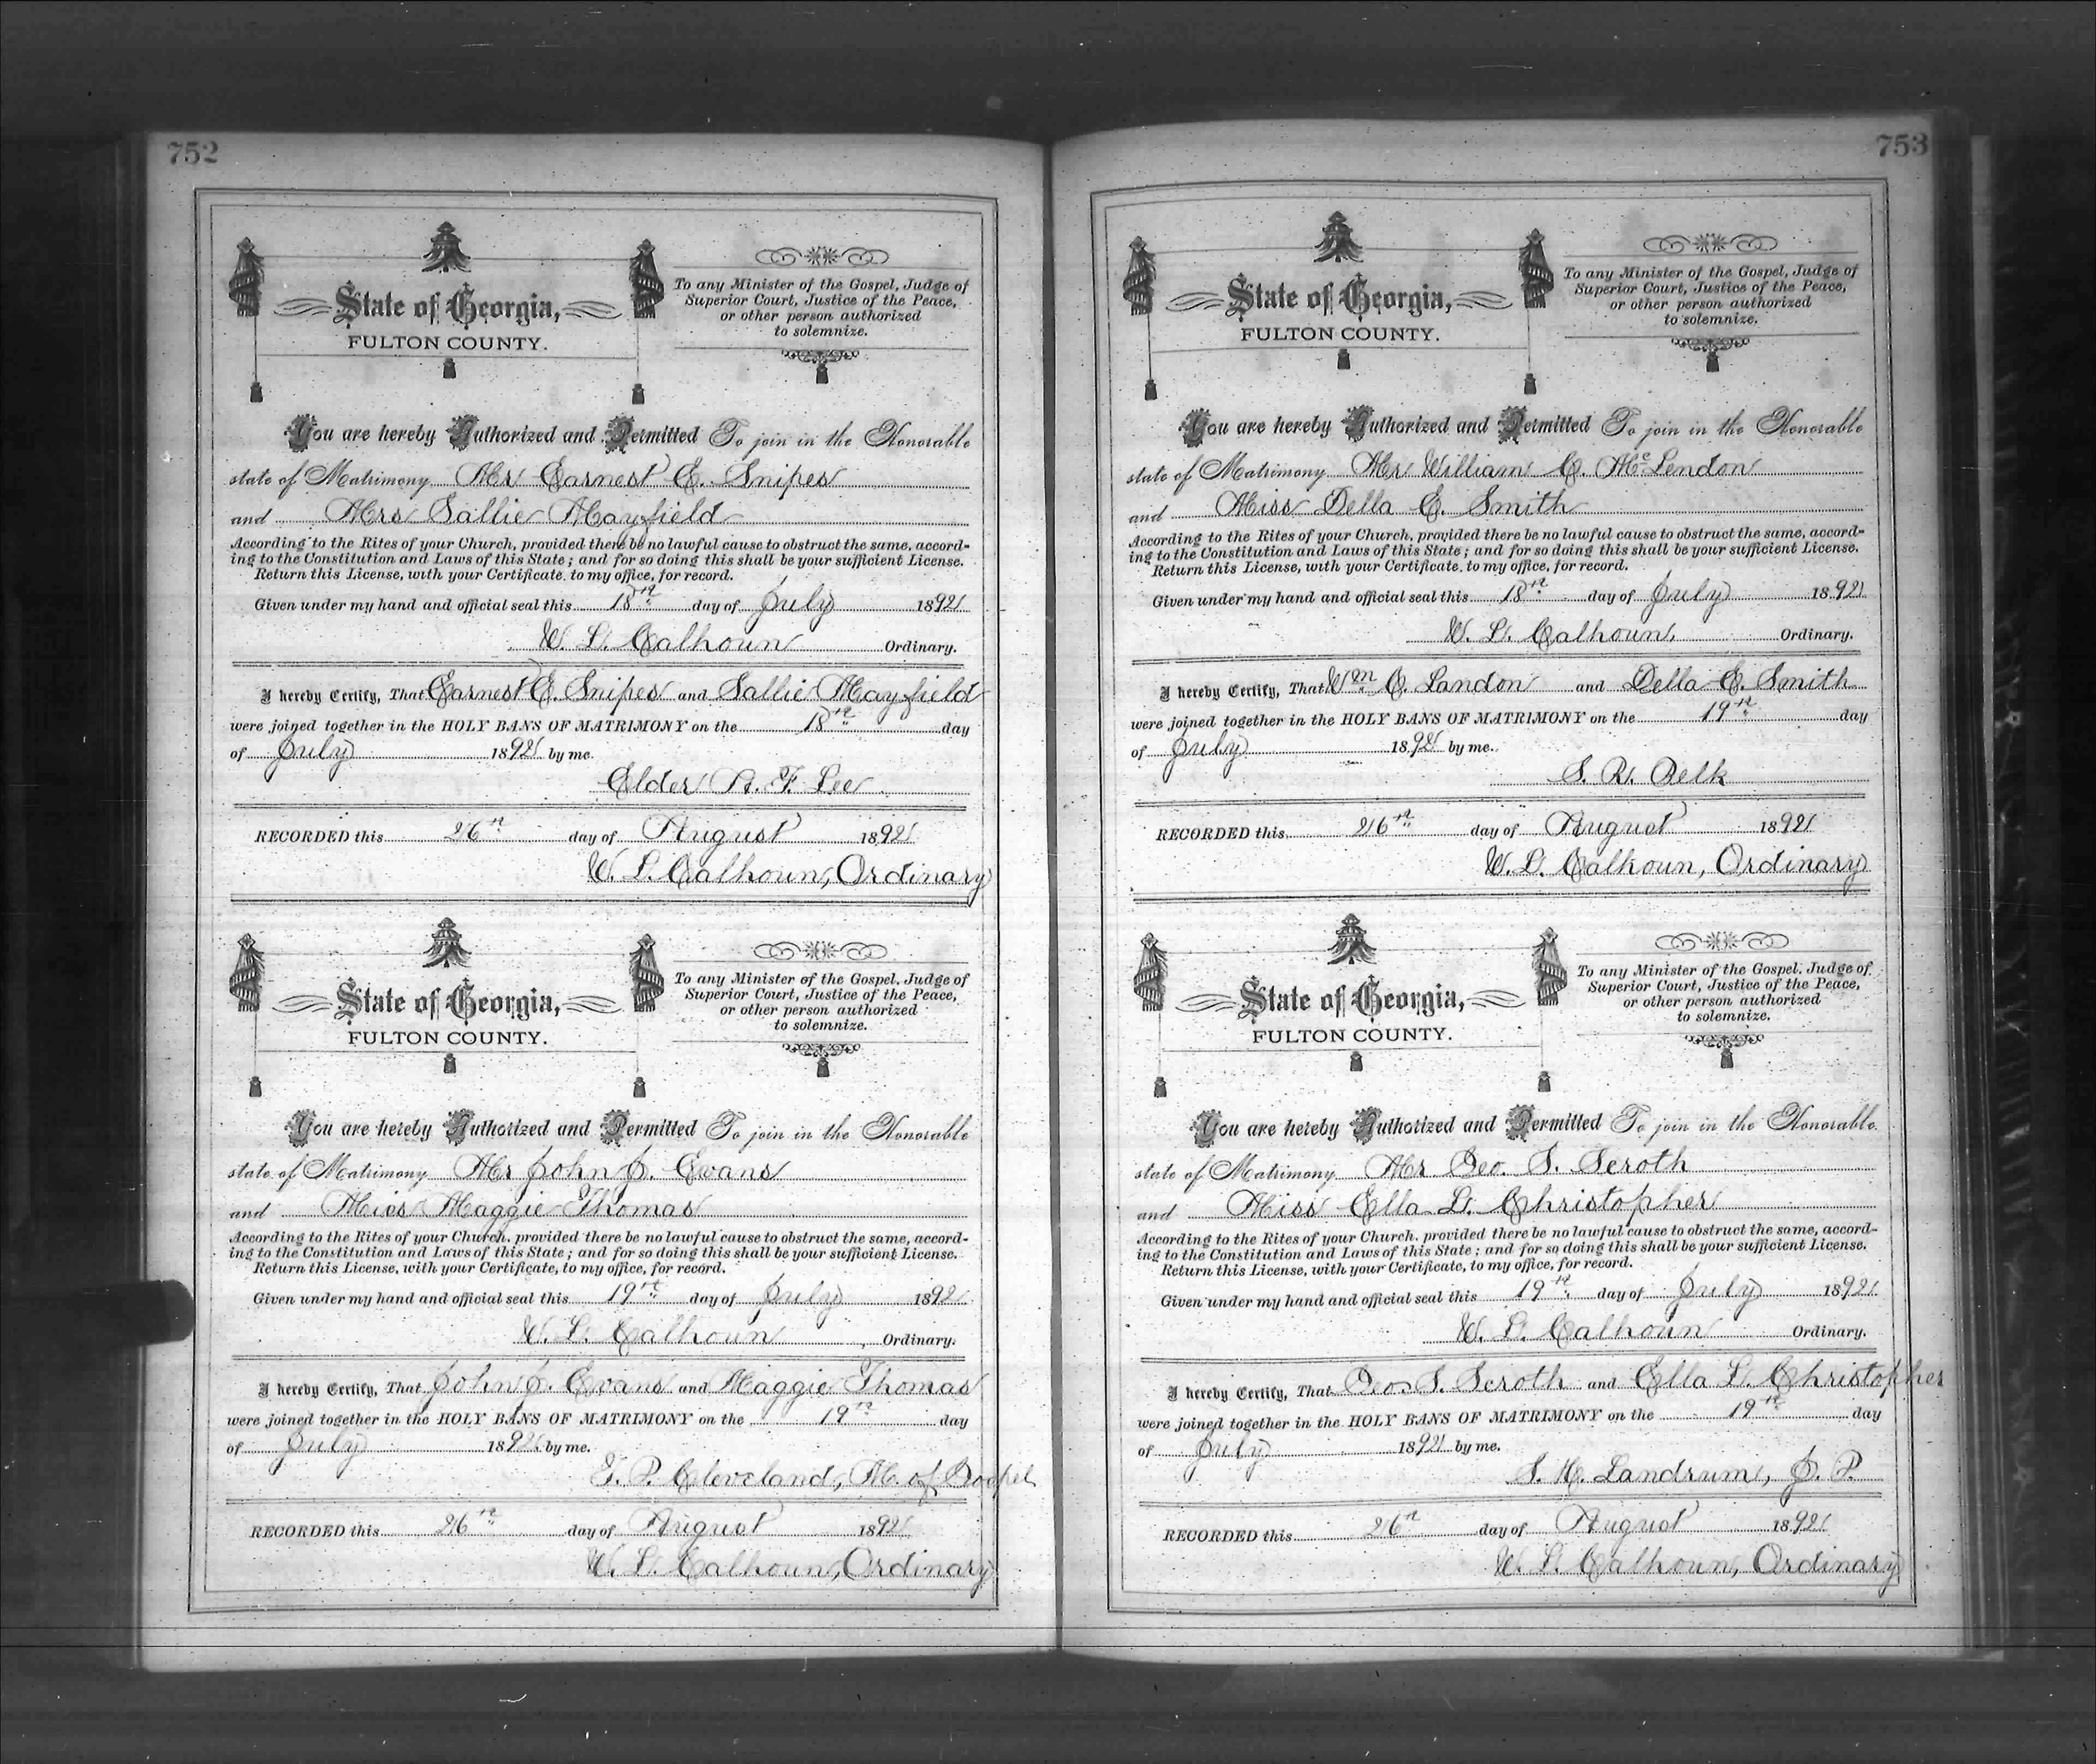 752
State of Georgia,
FULTON COUNTY.
To any Minister of the Gospel, Judge of
Superior Court, Justice of the Peace,
or other person authorized
to solemnize.
You are hereby Authorized and Permitted To join in the Honorable
state of Matrimony Mr Earnest E. Snipes
and Mrs Sallie Mayfield
According to the Rites of your Church, provided there be no lawful cause to obstruct the same, accord-
ing to the Constitution and Laws of this State; and for so doing this shall be your sufficient License.
Return this License, with your Certificate, to my office, for record.
Given under my hand and official seal this 18th day of July 1892
W. L. Calhoun Ordinary.
I hereby Certify, That Earnest E. Snipes and Sallie Mayfield
were joined together in the HOLY BANS OF MATRIMONY on the 18th day
of July 1892 by me.
Elder A. F. Lee
RECORDED this 26th day of August 1892
W. L. Calhoun, Ordinary
State of Georgia,
FULTON COUNTY.
To any Minister of the Gospel, Judge of
Superior Court, Justice of the Peace,
or other person authorized
to solemnize.
You are hereby Authorized and Permitted To join in the Honorable
state of Matrimony Mr John J. Evans
and Miss Maggie Thomas
According to the Rites of your Church, provided there be no lawful cause to obstruct the same, accord-
ing to the Constitution and Laws of this State; and for so doing this shall be your sufficient License.
Return this License, with your Certificate, to my office, for record.
Given under my hand and official seal this 19th day of July 1892
W. L. Calhoun Ordinary.
I hereby Certify, That John J. Evans and Maggie Thomas
were joined together in the HOLY BANS OF MATRIMONY on the 19th day
of July 1892 by me.
T. P. Cleveland, M. of Gospel
RECORDED this 26th day of August 1892
W. L. Calhoun, Ordinary
753
State of Georgia,
FULTON COUNTY.
To any Minister of the Gospel, Judge of
Superior Court, Justice of the Peace,
or other person authorized
to solemnize.
You are hereby Authorized and Permitted To join in the Honorable
state of Matrimony Mr William C. McLendon
and Miss Della E. Smith
According to the Rites of your Church, provided there be no lawful cause to obstruct the same, accord-
ing to the Constitution and Laws of this State; and for so doing this shall be your sufficient License.
Return this License, with your Certificate, to my office, for record.
Given under my hand and official seal this 18th day of July 1892
W. L. Calhoun, Ordinary.
I hereby Certify, That Wm C. Landon and Della E. Smith
were joined together in the HOLY BANS OF MATRIMONY on the 19th day
of July 1892 by me.
S. R. Belk
RECORDED this 26th day of August 1892
W. L. Calhoun, Ordinary
State of Georgia,
FULTON COUNTY.
To any Minister of the Gospel, Judge of
Superior Court, Justice of the Peace,
or other person authorized
to solemnize.
You are hereby Authorized and Permitted To join in the Honorable
state of Matrimony Mr Geo. S. Scroth
and Miss Ella L. Christopher
According to the Rites of your Church, provided there be no lawful cause to obstruct the same, accord-
ing to the Constitution and Laws of this State; and for so doing this shall be your sufficient License.
Return this License, with your Certificate, to my office, for record.
Given under my hand and official seal this 19th day of July 1892
W. L. Calhoun Ordinary.
I hereby Certify, That Geo. S. Scroth and Ella L. Christopher
were joined together in the HOLY BANS OF MATRIMONY on the 19th day
of July 1892 by me.
S. H. Landrum, J. P.
RECORDED this 26th day of August 1892
W. L. Calhoun, Ordinary